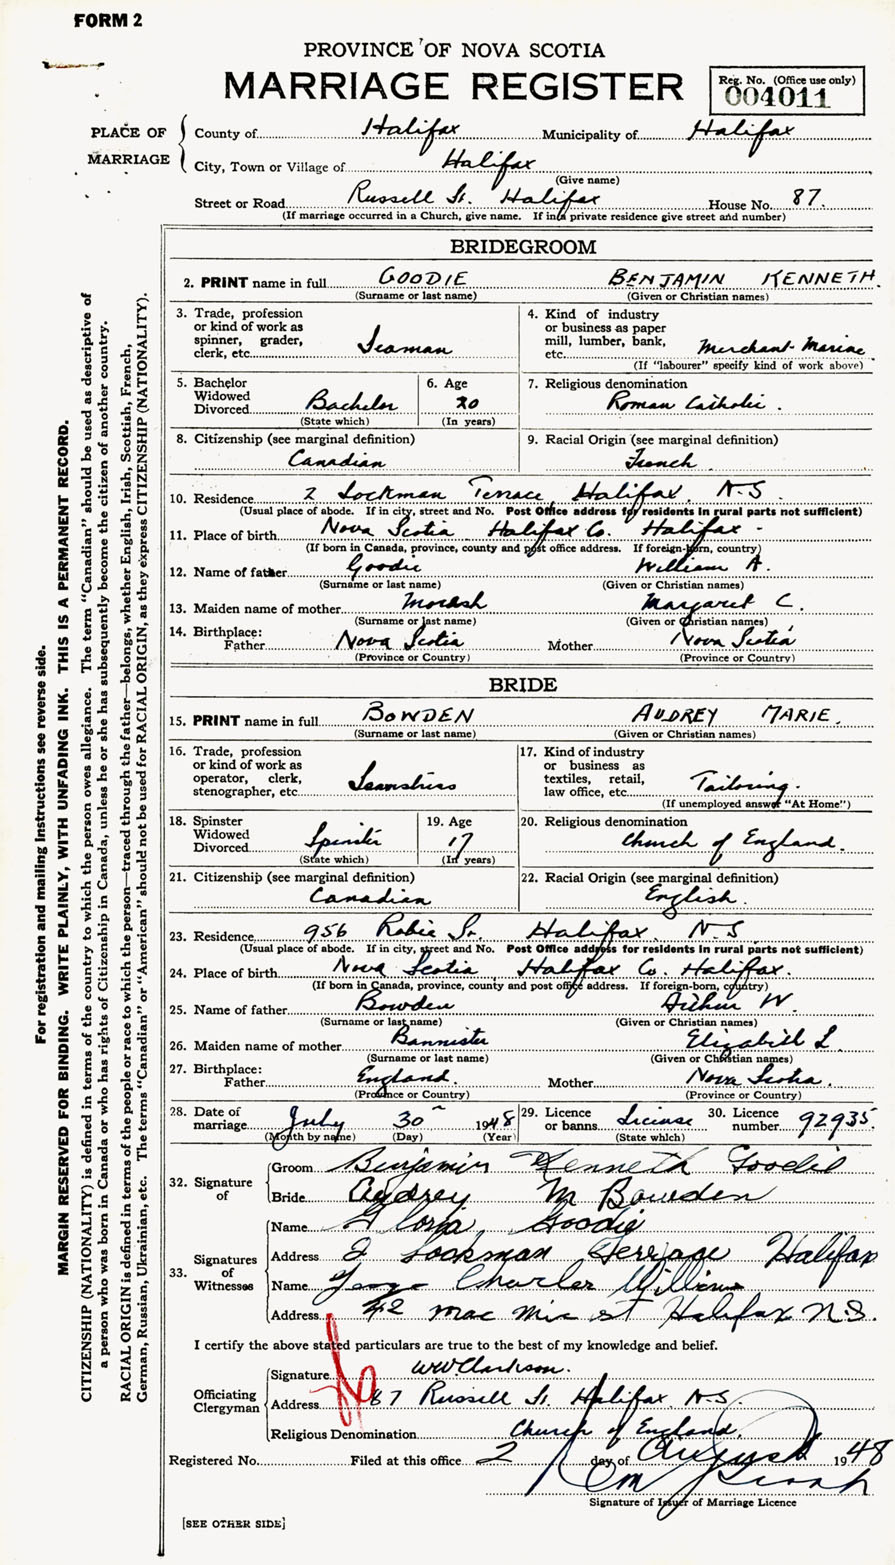 FORM 2
PROVINCE OF NOVA SCOTIA
MARRIAGE REGISTER
Reg. No. (Office use only)
004011
PLACE OF MARRIAGE
County of Halifax Municipality of Halifax
City, Town or Village of Halifax
(Give name)
Street or Road Russell St. Halifax House No. 87.
(If marriage occurred in a Church, give name. If in a private residence give street and number)
BRIDEGROOM
2. PRINT name in full GOODIE BENJAMIN KENNETH.
(Surname or last name) (Given or Christian names)
3. Trade, profession or kind of work as spinner, grader, clerk, etc. Seaman
4. Kind of industry or business as paper mill, lumber, bank, etc. Merchant Marine
(If "labourer" specify kind of work above)
5. Bachelor Widowed Divorced Bachelor
(State which)
6. Age 20
(In years)
7. Religious denomination
Roman Catholic.
8. Citizenship (see marginal definition)
Canadian
9. Racial Origin (see marginal definition)
French
10. Residence 2 Lockman Terrace, Halifax, N.S
(Usual place of abode. If in city, street and No. Post Office address for residents in rural parts not sufficient)
11. Place of birth Nova Scotia Halifax Co. Halifax -
(If born in Canada, province, county and post office address. If foreign-born, country)
12. Name of father Goodie William A.
(Surname or last name) (Given or Christian names)
13. Maiden name of mother Morash Margaret C.
(Surname or last name) (Given or Christian names)
14. Birthplace:
Father Nova Scotia Mother Nova Scotia
(Province or Country) (Province or Country)
BRIDE
15. PRINT name in full BOWDEN AUDREY MARIE.
(Surname or last name) (Given or Christian names)
16. Trade, profession or kind of work as operator, clerk, stenographer, etc. Seamstress
17. Kind of industry or business as textiles, retail, law office, etc. Tailoring.
(If unemployed answer "At Home")
18. Spinster Widowed Divorced Spinster
(State which)
19. Age 17
(In years)
20. Religious denomination
Church of England.
21. Citizenship (see marginal definition)
Canadian
22. Racial Origin (see marginal definition)
English.
23. Residence 956 Robie St. Halifax N.S
(Usual place of abode. If in city, street and No. Post Office address for residents in rural parts not sufficient)
24. Place of birth Nova Scotia, Halifax Co. Halifax.
(If born in Canada, province, county and post office address. If foreign-born, country)
25. Name of father Bowden Arthur W.
(Surname or last name) (Given or Christian names)
26. Maiden name of mother Bannister Elizabeth L.
(Surname or last name) (Given or Christian names)
27. Birthplace:
Father England. Mother Nova Scotia.
(Province or Country) (Province or Country)
28. Date of marriage July 30 1948
(Month by name) (Day) (Year)
29. Licence or banns License
(State which)
30. Licence number 92935.
32. Signature of
Groom Benjamin Kenneth Goodie
Bride Audrey M Bowden
33. Signatures of Witnesses
Name Gloria Goodie
Address 2 Lockman Terriace Halifax
Name George Charles Williams
Address 42 Halifax N.S.
I certify the above stated particulars are true to the best of my knowledge and belief.
Officiating Clergyman
Signature WW Clarkson.
Address 87 Russell St. Halifax N.S.
Religious Denomination Church of England.
Registered No. Filed at this office 2 day of August 1948
Signature of Issuer of Marriage Licence
[SEE OTHER SIDE]
For registration and mailing instructions see reverse side.
MARGIN RESERVED FOR BINDING. WRITE PLAINLY, WITH UNFADING INK. THIS IS A PERMANENT RECORD.
CITIZENSHIP (NATIONALITY) is defined in terms of the country to which the person owes allegiance. The term "Canadian" should be used as descriptive of
a person who was born in Canada or who has rights of Citizenship in Canada, unless he or she has subsequently become the citizen of another country.
RACIAL ORIGIN is defined in terms of the people or race to which the person—traced through the father—belongs, whether English, Irish, Scottish, French,
German, Russian, Ukrainian, etc. The terms "Canadian" or "American" should not be used for RACIAL ORIGIN, as they express CITIZENSHIP (NATIONALITY).